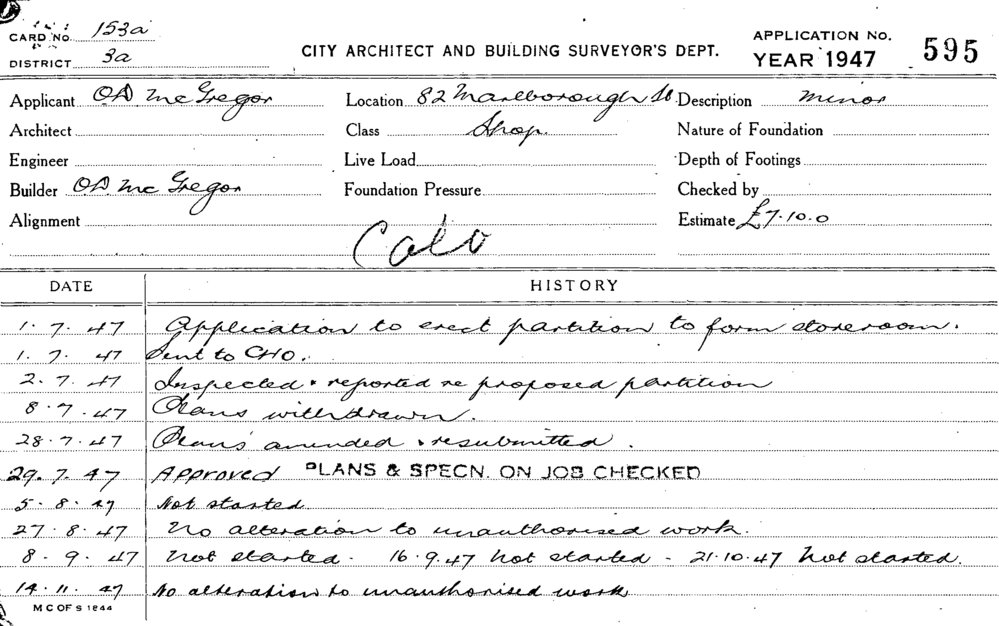 CARD NO. 153a
DISTRICT 3a
CITY ARCHITECT AND BUILDING SURVEYOR'S DEPT.
APPLICATION NO.
YEAR 1947 595
Applicant OA McGregor Location 82 Marlborough St Description minor
Architect Class Shop. Nature of Foundation
Engineer Live Load Depth of Footings
Builder OA McGregor Foundation Pressure Checked by
Alignment Estimate £7.10.0
DATE HISTORY
1. 7. 47 Application to erect partition to form storeroom.
1. 7. 47 Sent to CHO.
2. 7. 47 Inspected & reported re proposed partition
8. 7. 47 Plans withdrawn.
28. 7. 47 Plans amended & resubmitted.
29. 7. 47 Approved PLANS & SPECN. ON JOB CHECKED
5. 8. 47 Not started
27. 8. 47 No alteration to unauthorised work.
8. 9. 47 Not started - 16.9.47 Not started - 21.10.47 Not started.
14. 11. 47 No alteration to unauthorised work
M C OF S 1844